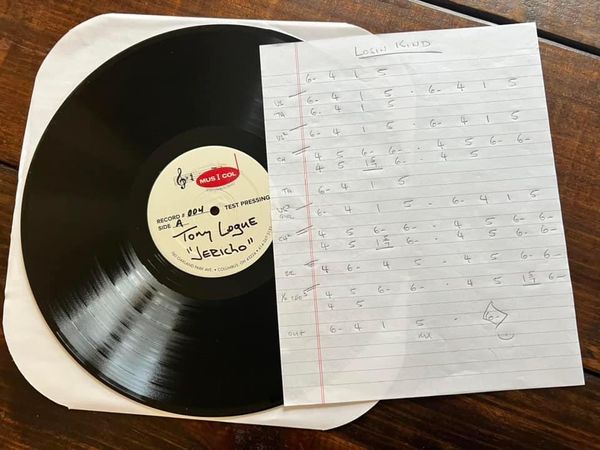 MUS I COL
RECORD # 004
TEST PRESSING
SIDE A
Tony Logue
"JERICHO"
780 OAKLAND PARK AVE. • COLUMBUS, OH 43224
LOSIN KIND
6- 4 1 5
VS 6- 4 1 5 · 6- 4 1 5
TA 6- 4 1 5
VS² 6- 4 1 5 · 6- 4 1 5
CH 4 5 6- 6- · 4 5 6- 6-
4 5 6- · 4 5
TA 6- 4 1 5
6- 4 1 5 · 6- 4 1 5
CH² 4 5 6- 6- · 4 5 6- 6-
4 5 6- · 4 5 6- 6-
4 6- 4 5 · 4 5 6- 6-
4 5 6- 6- · 4 5 6-
4 5
OUT 6- 4 1 5 · 6-